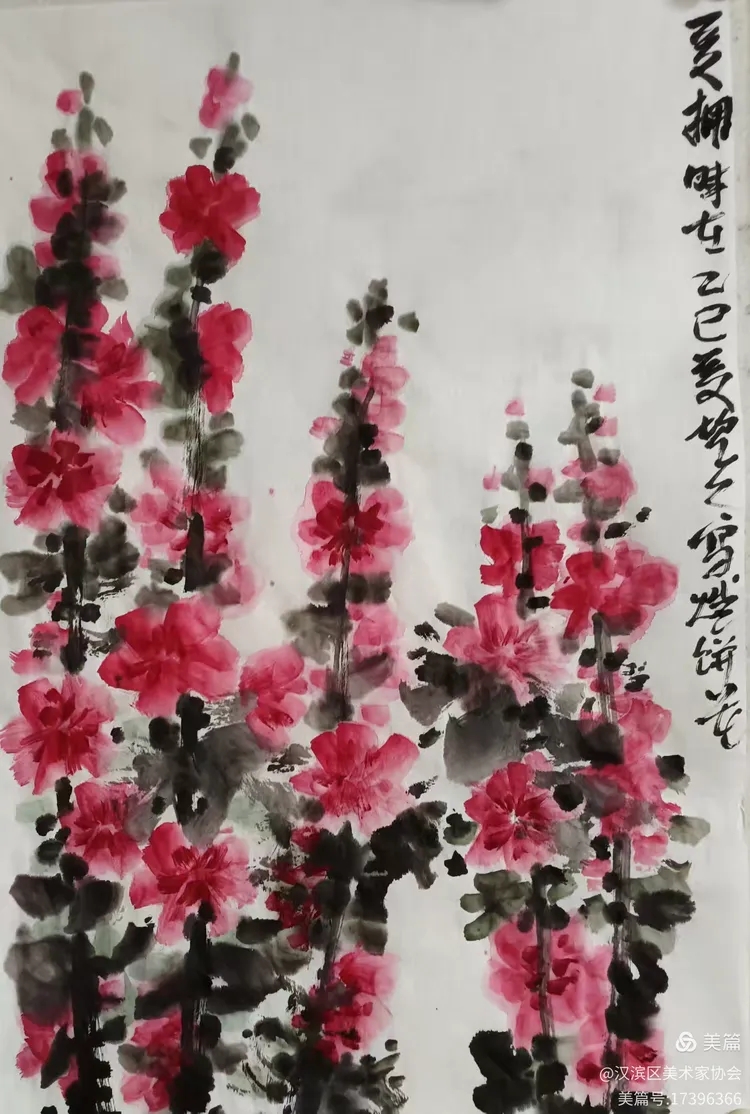 拥时在乙巳夏
写烧饼花
美篇
@汉滨区美术家协会
美篇号:17396366